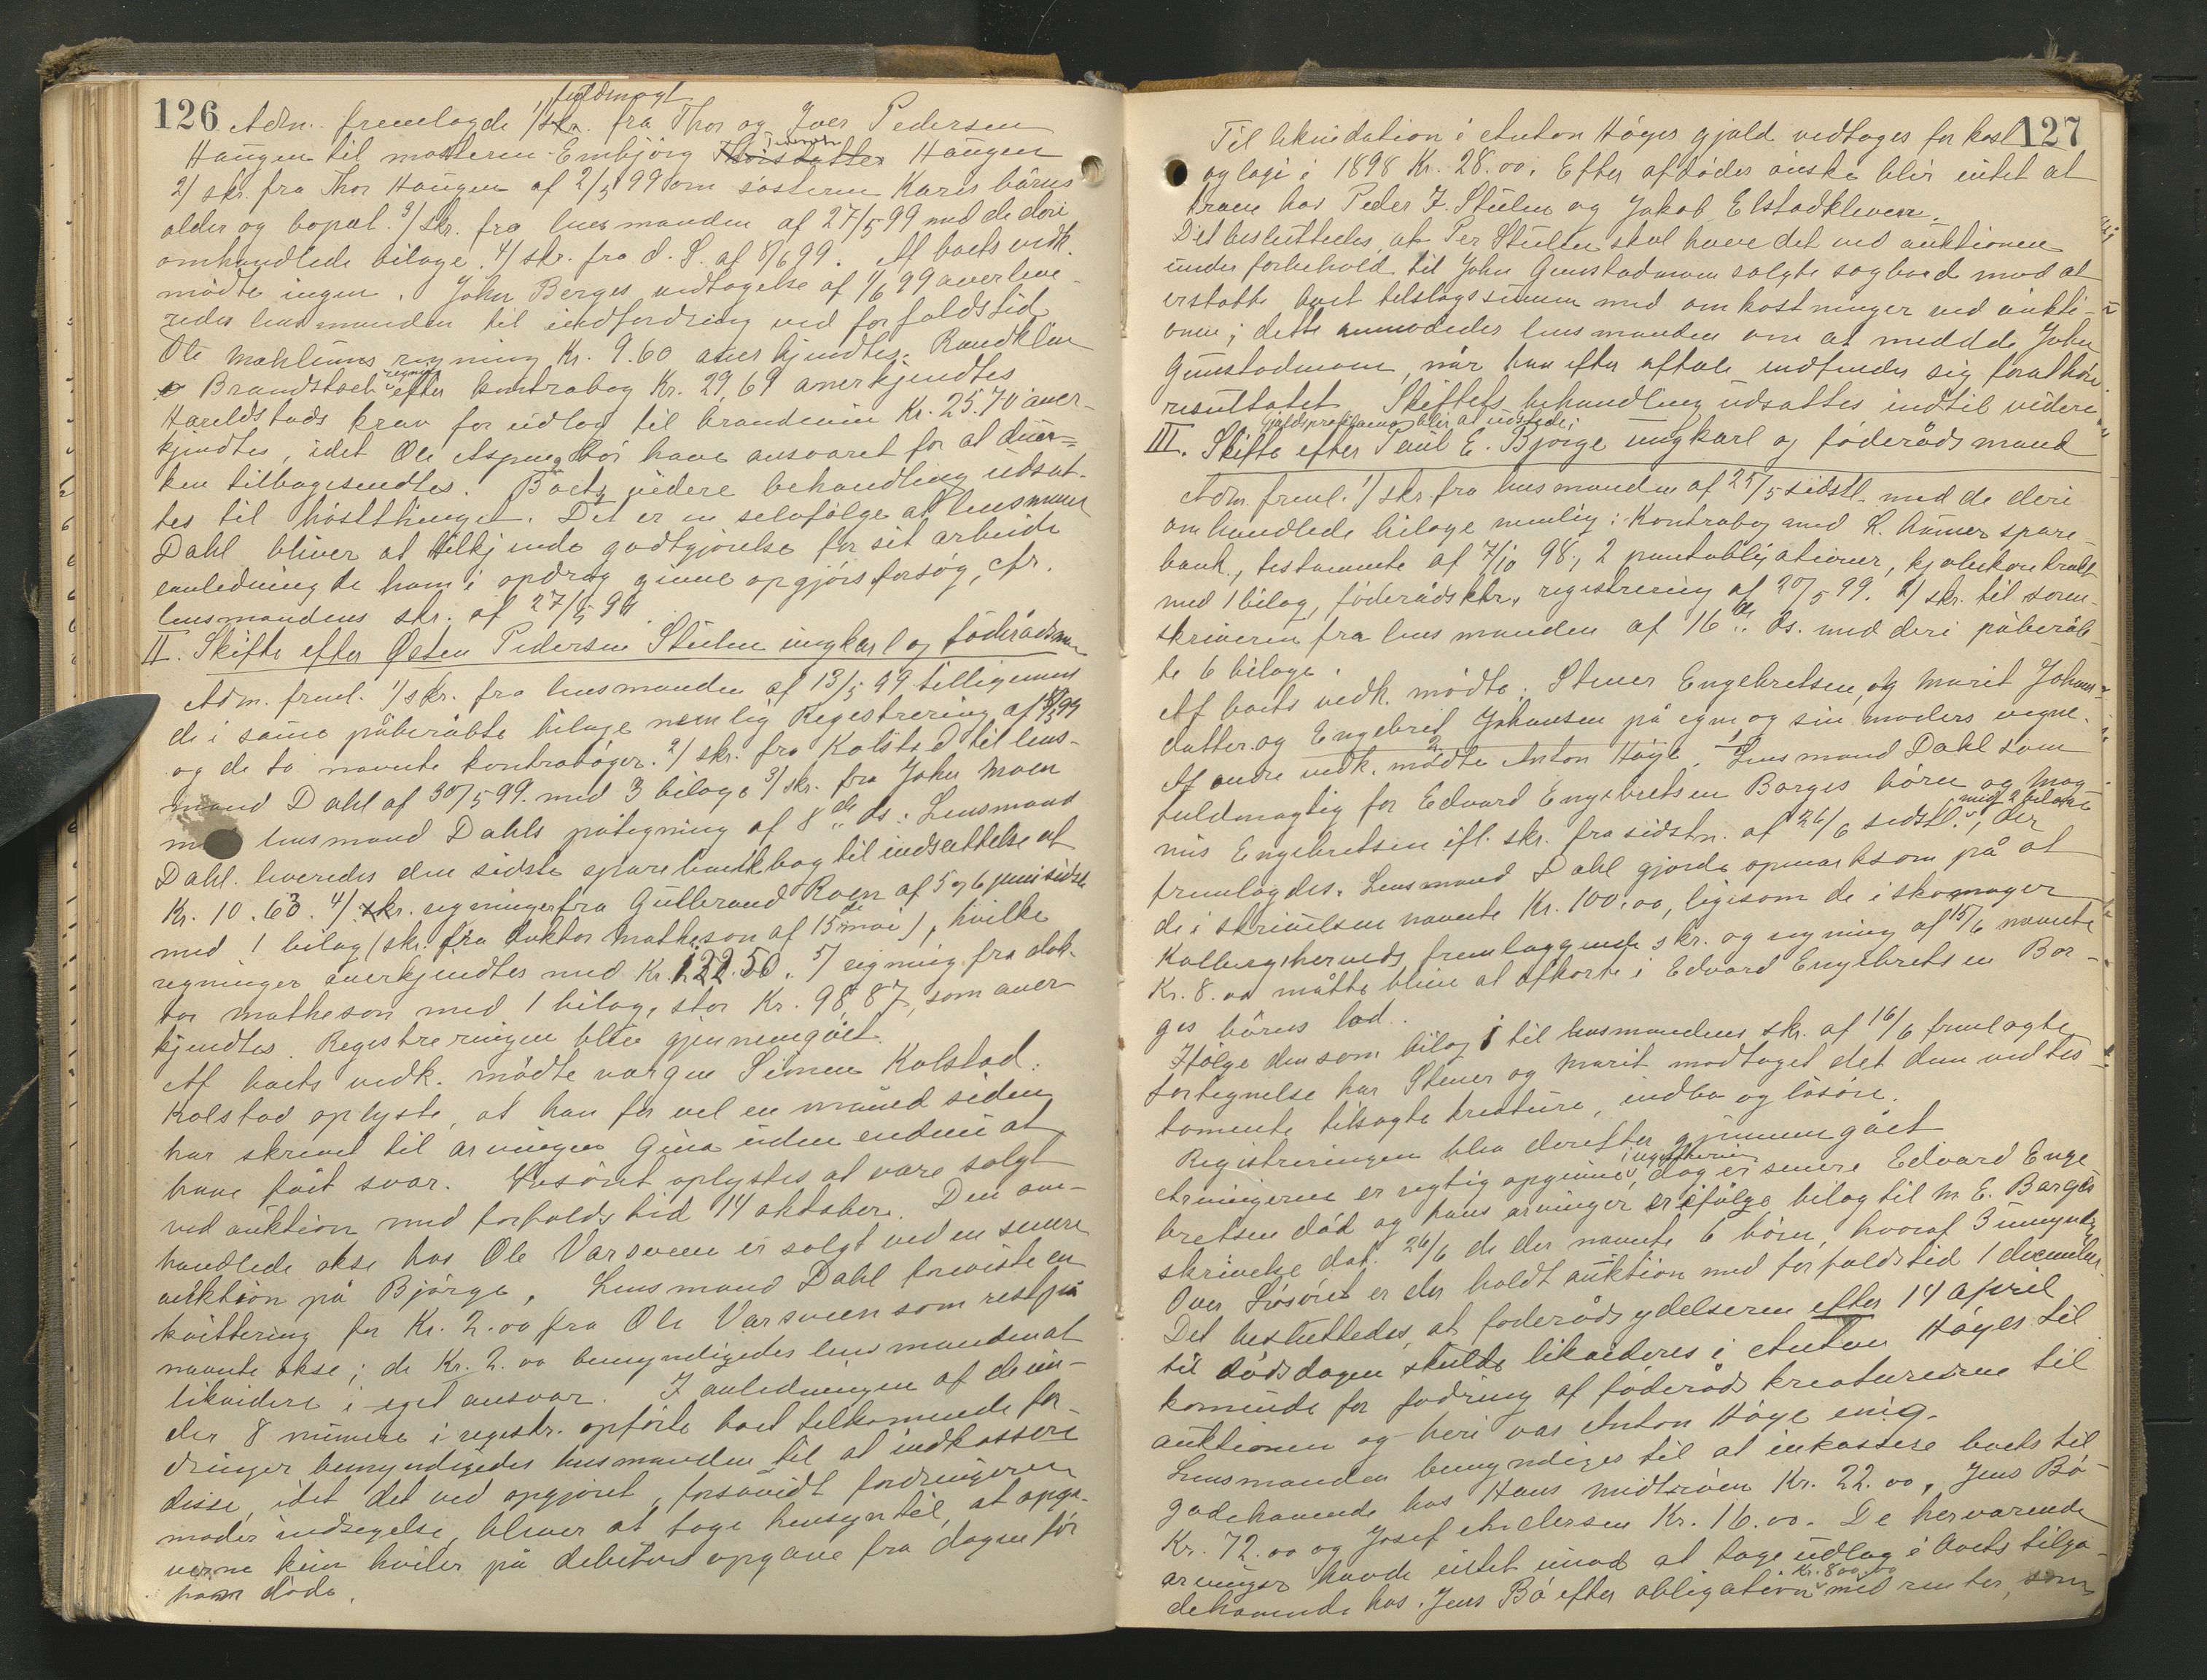 126
fuldmagt
Adm. fremlagde 1/ skr. fra Thor og Iver Pedersen
Haugen til mosteren Embjörg Thorsdatter Haugen
2/ skr. fra Thor Haugen af 2/5 99 om sösteren Karis börns
alder og bopæl. 3/ skr. fra lensmanden af 27/5 99 med de deri
omhandlede bilage. 4/ skr. fra d. S. af 8/6 99. Af boets vedk.
mödte ingen. John Berges vedtagelse af 1/6 99 overleve-
redes lensmanden til indfordring ved forfaldstid
Ole Mæhlums regning Kr. 9.60 anerkjendtes. Randklev
& Brandstads regning efter kontrabog Kr. 29,69 anerkjendtes
Hareldstads krav for udlæg til brændevin Kr. 25.70 aner-
kjendtes, idet Ole Aspeng bör have ansvaret for at dun-
ken tilbagesendtes. Boets videre behandling udsat-
tes til höstthinget. Det er en selvfölge at lensmand
Dahl bliver at tilkjende godtgjörelse for sit arbeide
i anledning de ham i opdrag givne opgjörsforsög, cfr.
lensmandens skr. af 27/5 99
II. Skifte efter Østen Pedersen Stulen ungkarl og föderådsmand
Adm. freml. 1/ skr. fra lensmanden af 13/5 99 tilligemed
de i samme påberåbte bilage nemlig Registrering af 13/5 99
og de to nævnte kontraböger. 2/ skr. fra Kolstad til lens-
mand Dahl af 30/5 99 med 3 bilag. 3/ skr. fra John Moen
med lensmand Dahls påtegning af 8de ds: Lensmand
Dahl leveredes den sidste sparebankbog til indsættelse af
Kr. 10.63. 4/ skr. regninger fra Gulbrand Roen af 5 og 6 juni sidstl.
med 1 bilag (skr. fra doktor Matheson af 15de mai), hvilke
regninger anerkjendtes med Kr. 122.50. 5/ regning fra dok-
tor Matheson med 1 bilag, stor Kr. 98,87, som aner-
kjendtes. Registreringen blev gjennemgået.
Af boets vedk. mödte værgen Simen Kolstad.
Kolstad oplyste, at han for vel en måned siden
har skrevet til arvingen Gina uden endnu at
have fåt svar. Lösöret oplystes at være solgt
ved auktion med forfaldstid 14 oktober. Den om-
handlede okse hos Ole Varsveen er solgt ved en senere
auktion på Björge. Lensmand Dahl foreviste en
kvittering for Kr. 2.00 fra Ole Varsveen som rest på
nævnte okse; de Kr. 2.00 bemyndigedes lensmanden at
likvidere i eget ansvar. I anledningen af de un-
der 8 numere i registr. opförte boet tilkommende for-
dringer bemyndigedes lensmanden til at indkassere
disse, idet det ved opgjöret, forsåvidt fordringerne
möder indsigelse, bliver at tage hensyn til, at opga-
verne kun hviler på debitors opgave fra dagen för
han döde.
127
Til likvidation i Anton Höyes gjæld vedtoges for kost
og logi i 1898 Kr. 28.00. Efter afdödes önske blir intet at
kræve hos Peder J. Stulen og Jakob Elstadkleven.
Det besluttedes, at Per Stulen skal have det ved auktionen
under forbehold til John Gunstadmoen solgte sagbord mod at
erstatte boet tilslagssummen med omkostninger ved aukti-
onen; dette anmodedes lensmanden om at meddele John
Gunstadmoen, når han efter aftale indfinder sig forat höre
resultatet. Skiftets behandling udsattes indtil videre.
Gjældsproklama blir at udstede;
III. Skifte efter Paul E. Bjorge ungkarl og föderådsmand
Adm. freml. 1/ skr. fra lensmanden af 25/5 sidstl. med de deri
omhandlede bilage nemlig: Kontrabog med L. hamer spare-
bank, testamente af 7/10 98, 2 pantobligationer, kjöbekontrakt
med 1 bilag, föderådsktr., registrering af 20/5 99. 2/ skr. til soren-
skriveren fra lensmanden af 16de ds. med deri påberåb-
te 6 bilage.
Af boets vedk. mödte: Stener Engebretsen, og Marit Johans-
datter og Engebret Johansen på egne og sin moders vegne.
Af andre vedk. mödte Anton Höye. Lensmand Dahl som
fuldmægtig for Edvard Engebretsen Borges börn og Mag-
nus Engebretsen ifl. skr. fra sidstn. af 26/6 sidstl. med 2 bilage, der
fremlagdes. Lensmand Dahl gjorde opmærksom på at
de i skrivelsen nævnte Kr. 100.00, ligesom de i skomager
Kolbergsherveds fremlæggende skr. og regning af 15/6 nævnte
Kr. 8.00 måtte blive at afkorte i Edvard Engebretsen Bor-
ges börns lod.
Ifölge den som bilag 1 til lensmandens skr. af 16/6 fremlagte
fortegnelse har Stener og Marit modtaget det dem ved tes-
tamente tilsagte kreature, indbo og lösöre.
Registreringen blev derefter gjennemgået
Arvingerne er rigtig opgivne i registreringen, dog er senere Edvard Enge
bretsen död og hans arvinger er ifölge bilag til M. E. Barges
skrivelse dat. 26/6 de der nævnte 6 börn, hvoraf 3 umyndige
Over Lösöret er der holdt auktion med forfaldstid 1 december.
Det besluttedes, at föderådsydelserne efter 14 April
til dödsdagen skulde likvideres i Anton Höyes til
kommende for fodring af föderådskreaturerne til
auktionen og heri var Anton Höye enig.
Lensmanden bemyndiges til at inkassere boets til
godehavende hos Hans Midtmoen Kr. 22.00, Jens Bö
Kr. 72.00 og Josef Andersen Kr. 16.00. De herværende
arvinger havde intet imod at tage udlæg i boets tilgo-
dehavende hos Jens Bö efter obligation Kr. 800.00 med renter, som